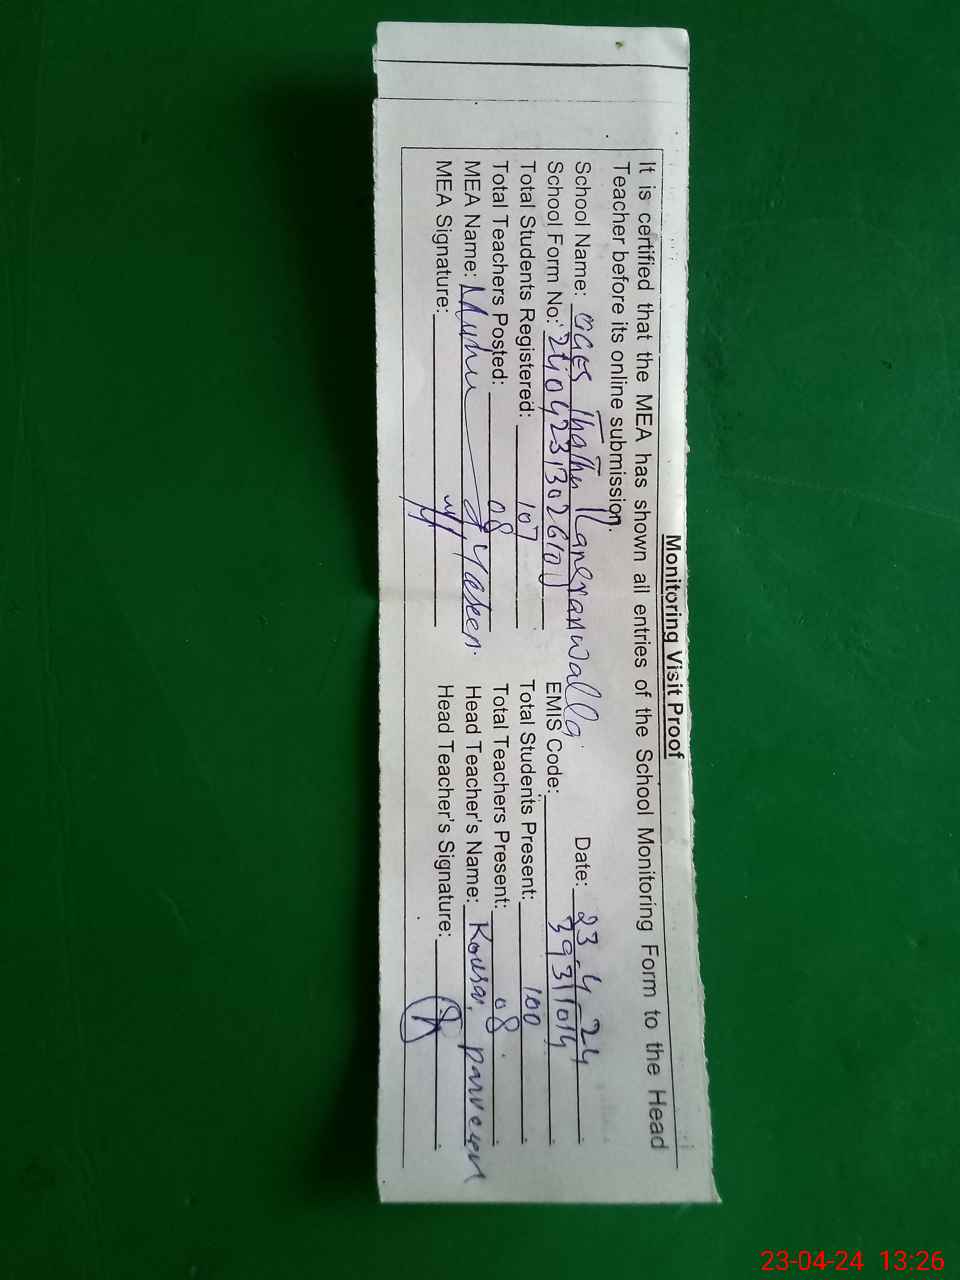 Monitoring Visit Proof
It is certified that the MEA has shown all entries of the School Monitoring Form to the Head
Teacher before its online submission.
School Name: GGES Thathi Date: 23.4.24
School Form No: EMIS Code: 39311014
Total Students Registered: 107 Total Students Present: 100
Total Teachers Posted: 08 Total Teachers Present: 08
MEA Name: Yaseen. Head Teacher's Name: Kousar Parveen
MEA Signature: Head Teacher's Signature:
23-04-24 13:26